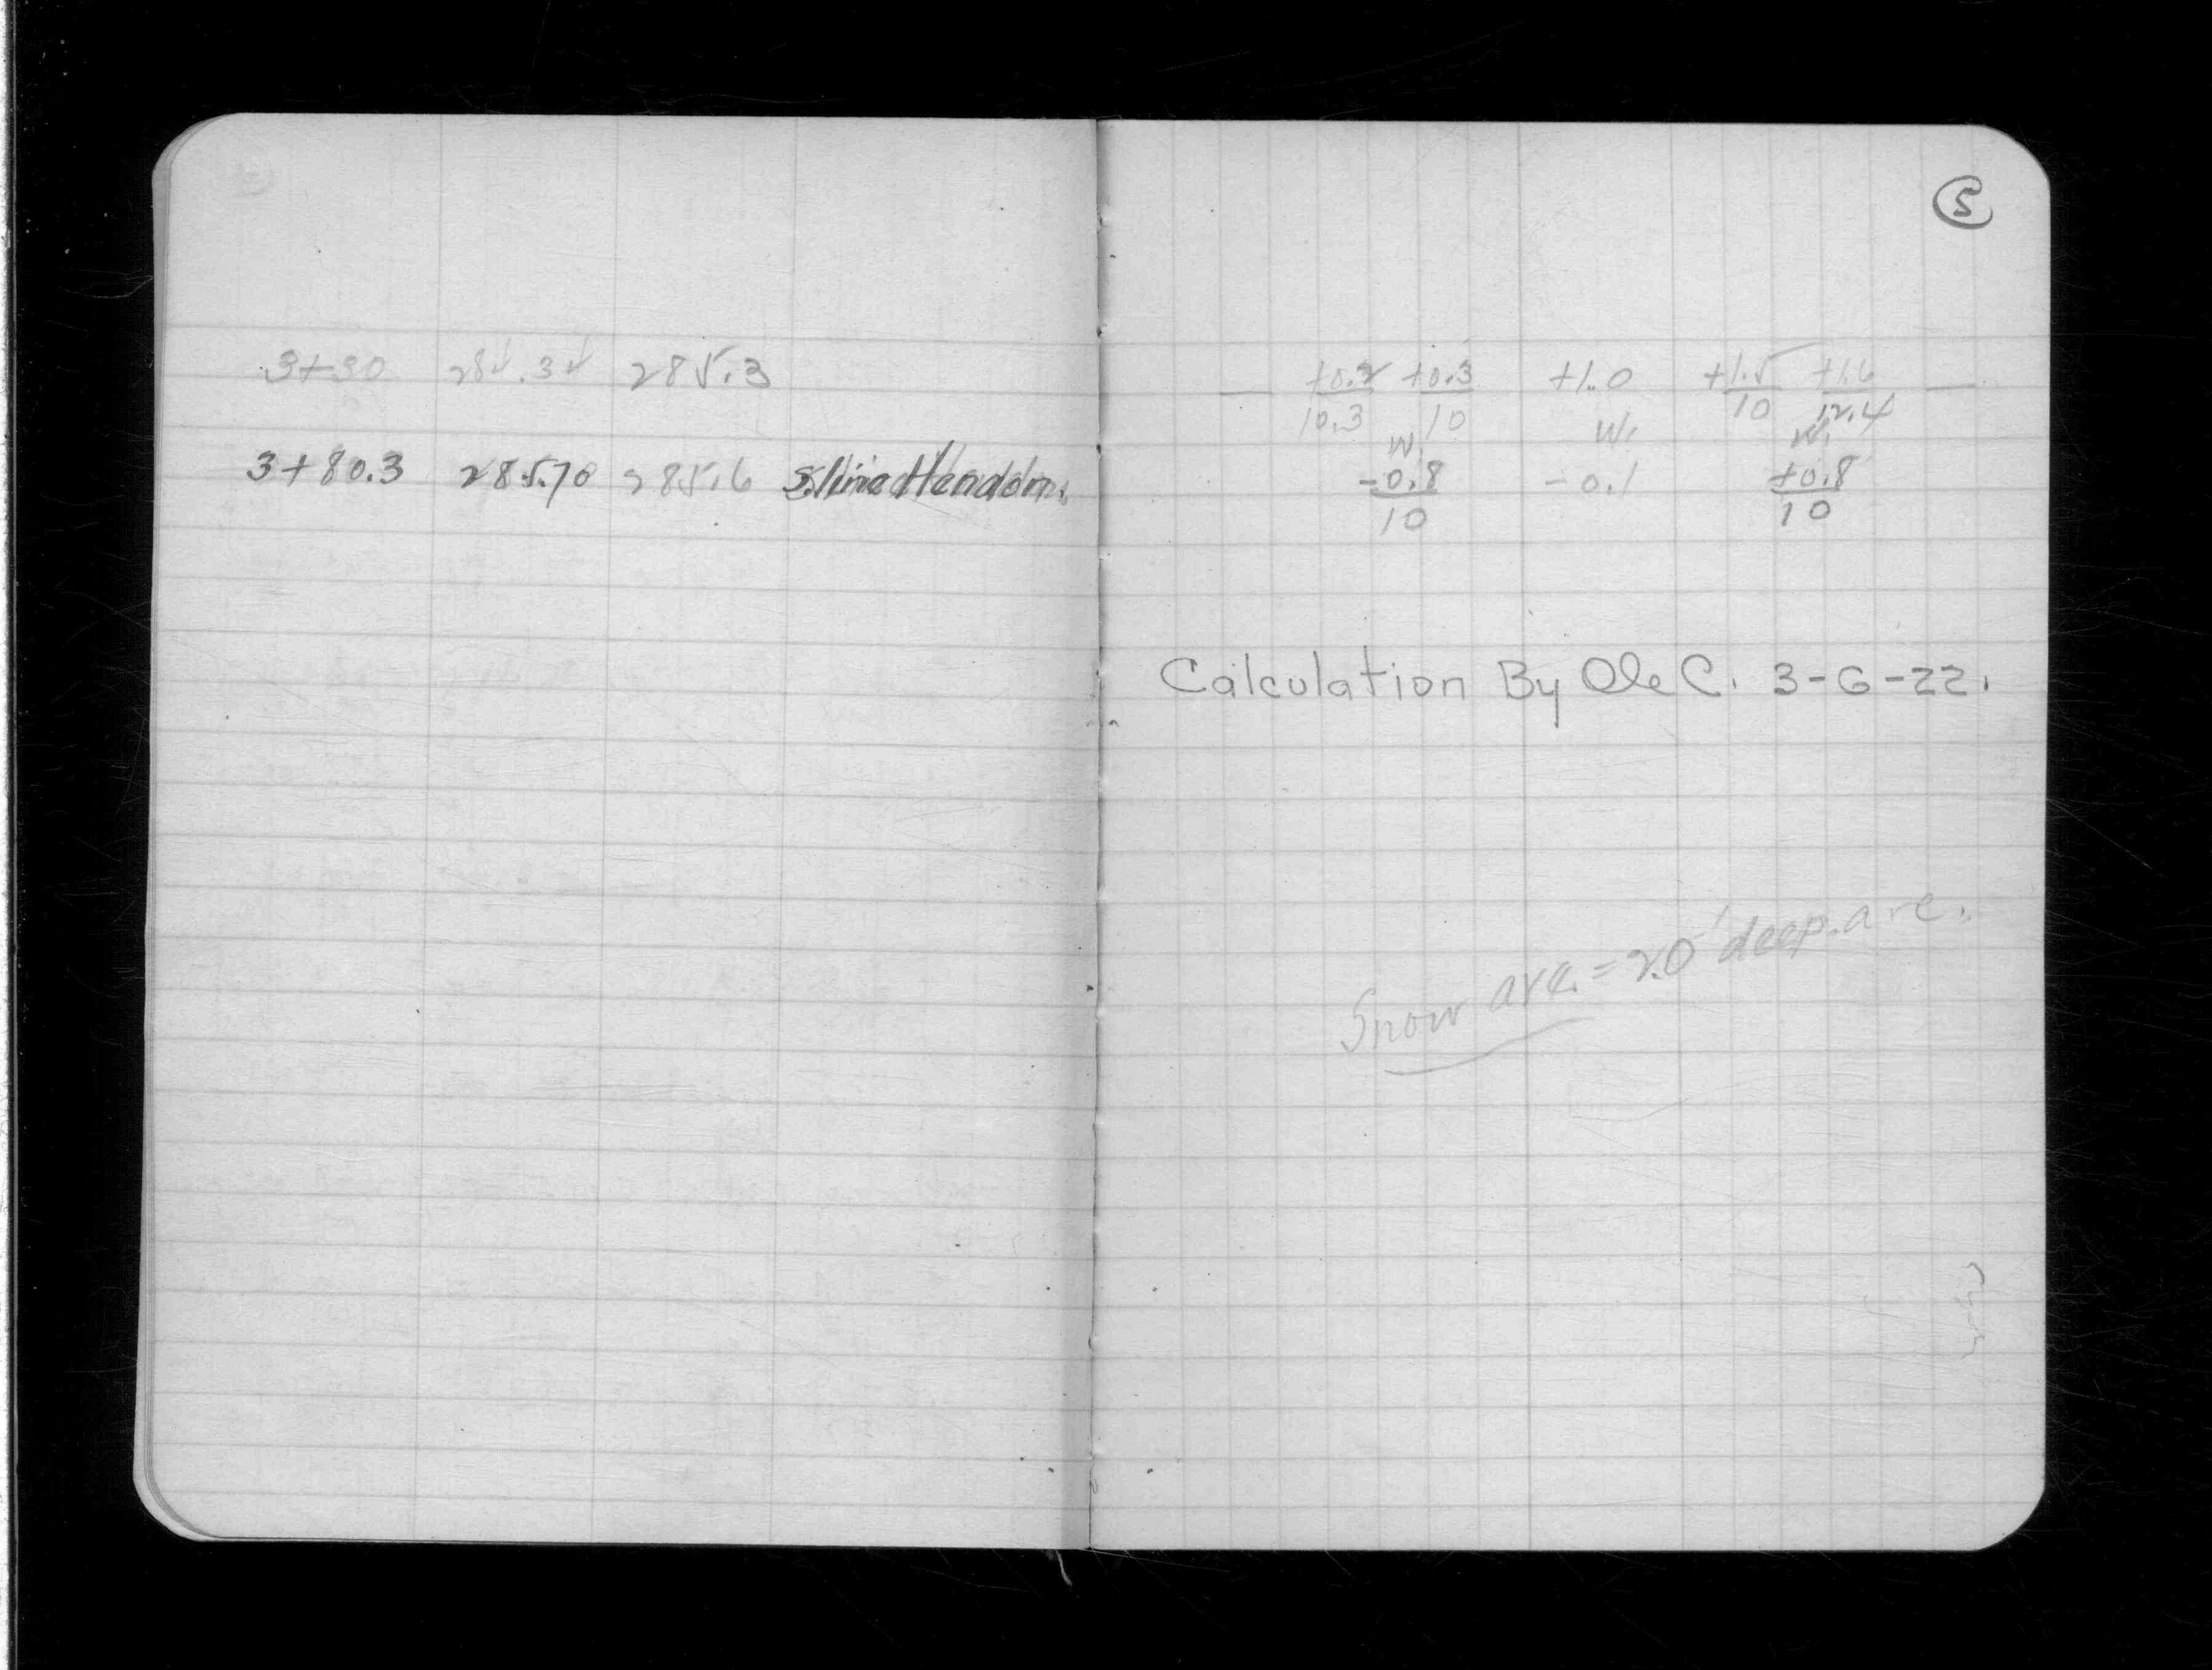 5
3+30 285.35 285.3
+0.2 +0.3 +1.0 +1.5 +1.6
10.3 10 10 12.4
W. W. W.
3+80.3 285.70 285.6 S. line Hendom.
-0.8 -0.1 +0.8
10 10
Calculation By Ole C. 3-6-22.
Snow ave. = 2.0' deep. ave.